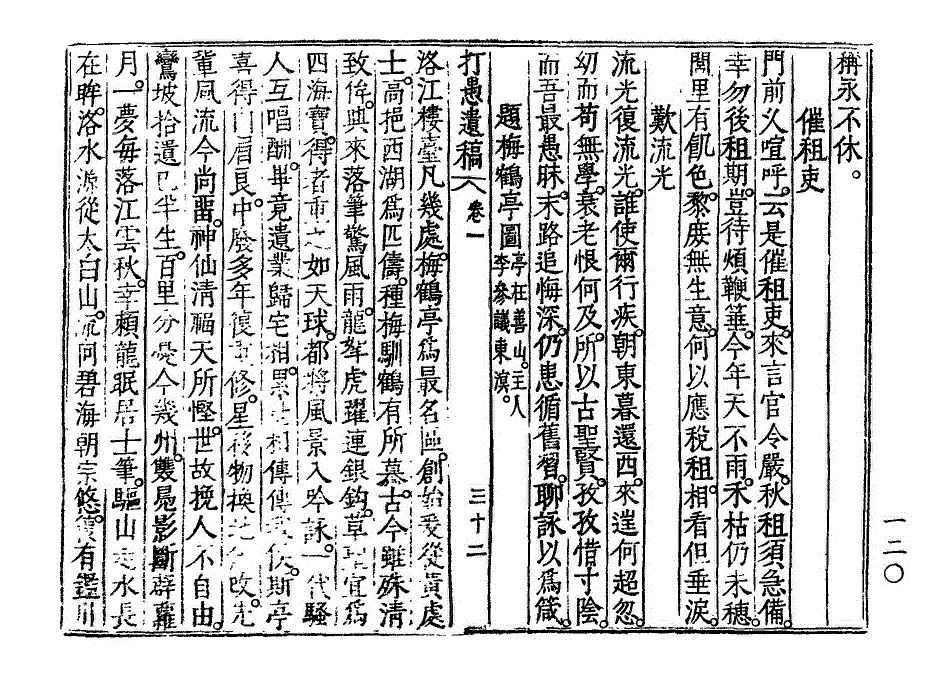 稱永不休。
催租吏
門前父喧呼。云是催租吏。來言官令嚴。秋租須急備。
幸勿後租期。豈待煩鞭箠。今年天不雨。禾枯仍未穗。
閭里有飢色。黎庶無生意。何以應稅租。相看但垂淚。
歎流光
流光復流光。誰使爾行疾。朝東暮還西。來逞何超忽。
幼而苟無學。衰老恨何及。所以古聖賢。孜孜惜寸陰。
而吾最愚昧。末路追悔深。仍患循舊習。聊詠以爲箴。
題梅鶴亭圖 亭在善山。主人李參議東溟。
打愚遺稿 卷一 三十二
洛江樓臺凡幾處。梅鶴亭爲最名區。創始爰從黃處
士。高挹西湖爲匹儔。種梅馴鶴有所慕。古今雖殊淸
致侔。興來落筆驚風雨。龍拏虎躍連銀鉤。草聖宜爲
四海寶。得者重之如天球。都將風景入吟詠。一代騷
人互唱酬。畢竟遺業歸宅相。累世相傳傳 伏。斯亭
喜得門眉良。中廢多年復重修。星移物換 改。先
輩風流今尙留。神仙淸福天所慳。世故挽人不自由。
鸞坡拾遺已半生。百里分憂今幾州。雙鳧影斷薜蘿
月。一夢每落江雲秋。幸賴龍眠居士筆。驅山走水長
在眸。洛水源從太白山。流向碧海朝宗悠。復有鑑川
一二〇